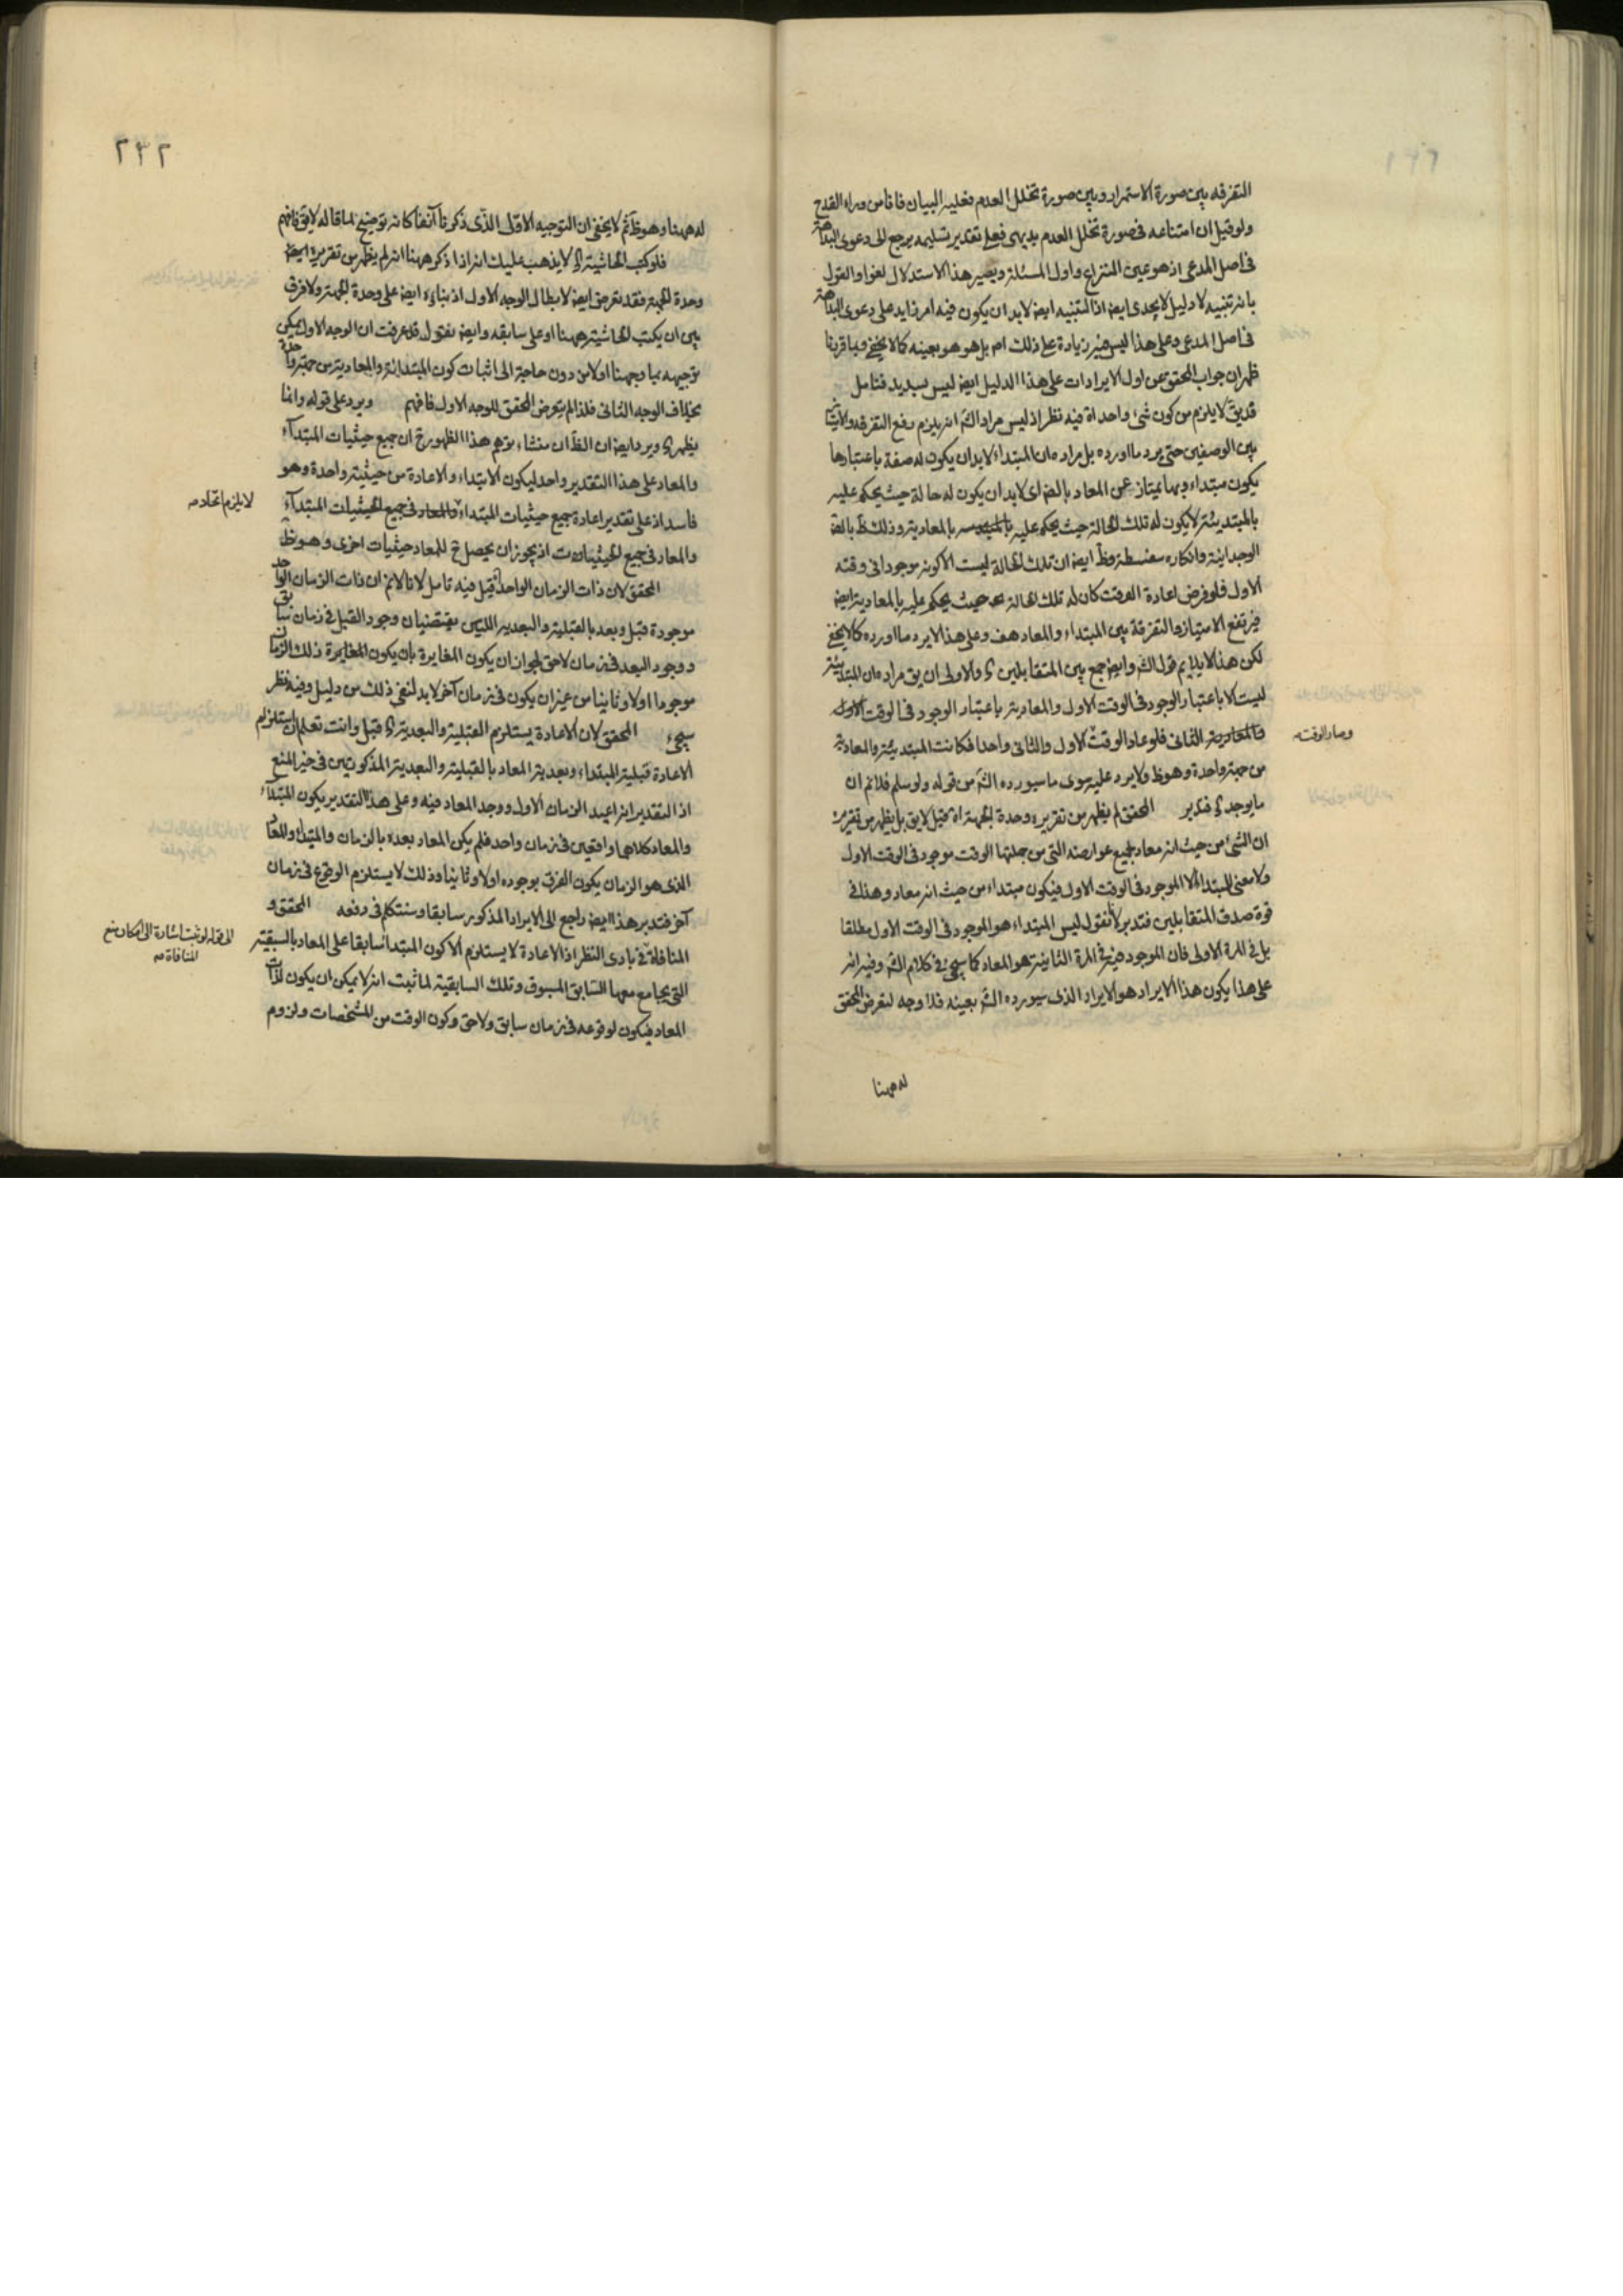 التفرقه بين صورة الاستمرار وبين صورة تخلل العدم فعليه البيان فانا من وراء القدح
ولو قيل ان امتناعه فى صورة تخلل العدم بديهى فعلى تقدير تسليمه يرجع الى دعوى البداهة
فى اصل المدعى اذ هو عين النزاع واول المسئلة ويصير هذا الاستدلال لغوا والقول
بانه تنبيه لا دليل لا يجدى ايضا اذ التنبيه ايضا لابد ان يكون فيه امر زايد على دعوى البداهة
فى اصل المدعى وعلى هذا ليس فيه زيادة على ذلك ام بل هو هو بعينه كما لا يخفى وبما قررنا
ظهر ان جواب المحقق عن اول الايرادات على هذا الدليل ايضا ليس بسديد فتامل
قد يق لا يلزم من كون شئ واحد اه فيه نظر اذ ليس مراد الش انه يلزم رفع التفرقه والاثنينية
بين الوصفين حتى يرد ما اورده بل مراده ان المبتداء لابد ان يكون له صفة باعتبارها
يكون مبتداء وبها يمتاز عن المعاد بالضر اى لابد ان يكون له حالة حيث يحكم عليه
بالمبتدئية لا يكون له تلك الحالة حيث يحكم عليه بالمعادية وذلك ظ بالضرورة
الوجدانية وانكاره سفسطة وظ ايضا ان تلك الحالة ليست الا كونه موجودا فى وقته
الاول فلو فرض اعادة الوقت كان له تلك الحالة حيث يحكم عليه بالمعادية ايضا
فيرتفع الامتياز والتفرقة بين المبتداء والمعاد هف وعلى هذا لا يرد ما اورده كما لا يخفى
لكن هذا لا يلايم قول الش وايضا جمع بين المتقابلين ى والاولى ان يق مراده ان المبتدئية
ليست الا باعتبار الوجود فى الوقت الاول والمعادية باعتبار الوجود فى الوقت
الثانى فلو عاد الوقت الاول والثانى واحدا فكانت المبتدئية والمعادية
وصار الوقت صه
من جهة واحدة وهو ظ ولا يرد عليه سوى ما سيورده الش من قوله ولو سلم فلانم ان
ما يوجد ى فتدبر المحقق لم يظهر من تقريره وحدة الجهة اه قيل لا يق بل يظهر من تقريره
ان الشئ من حيث انه معاد بجميع عوارضه التى من جملتها الوقت موجود فى الوقت الاول
ولا معنى للمبتداء الا الموجود فى الوقت الاول فيكون مبتداء من حيث انه معاد وهذا فى
قوة صدق المتقابلين فتدبر لانا نقول ليس المبتداء هو الموجود فى الوقت الاول مطلقا
بل فى المرة الاولى فان الموجود فيه فى المرة الثانية هو المعاد كما سيجئ فى كلام الش وفيه انه
على هذا يكون هذا الايراد هو الايراد الذى سيورده الش بعينه فلا وجه لتعرض المحقق
له ههنا
٢٣٢
له ههنا وهو ظ ثم لا يخفى ان التوجيه الاول الذى ذكرنا آنفا كانه توضيح لما قاله لا يق فافهم
فلو كتب الحاشية ى لا يذهب عليك انه اذا ذكر ههنا انه لم يظهر من تقريره ايضا
وحدة الجهة فقد تعرض ايضا لابطال الوجه الاول اذ بناءه ايضا على وحدة الجهة ولا فرق
بين ان يكتب الحاشية ههنا او على سابقه وايضا نقول قد عرفت ان الوجه الاول يمكن
توجيهه بما وجهنا اولا من دون حاجة الى اثبات كون المبتدائية والمعادية من جهة واحدة
بخلاف الوجه الثانى فلذا لم يتعرض المحقق للوجه الاول فافهم ويرد على قوله وانما
يظهر ى ويرد ايضا ان الظ ان منشاء توهم هذا الظهور ح ان جميع حيثيات المبتداء
والمعاد على هذا التقدير واحد ليكون الابتداء والاعادة من حيثية واحدة وهو
فاسد اذ على تقدير اعادة جميع حيثيات المبتداء
لا يلزم اتحاده صه
والمعاد فى جميع الحيثيات اذ يجوز ان يحصل ح للمعاد حيثيات اخرى وهو ظ
المحقق لان ذات الزمان الواحد قيل فيه تامل لانا لانم ان ذات الزمان الواحد
موجودة قبل وبعد بالقبلية والبعدية اللتين يقتضيان وجود القبل فى زمان سابق
ووجود البعد فى زمان لاحق لجواز ان يكون المغايرة بان يكون المغايرة ذلك الزمان
موجودا اولا وثانيا من غير ان يكون فى زمان آخر لابد لنفى ذلك من دليل وفيه نظر
سيجئ المحقق لان الاعادة يستلزم القبلية والبعدية ى قيل وانت تعلم ان استلزام
الاعادة قبلية المبتداء وبعدية المعاد بالقبلية والبعدية المذكورتين فى حيز المنع
اذ التقدير انه اعيد الزمان الاول ووجد المعاد فيه وعلى هذا التقدير يكون المبتداء
والمعاد كلاهما واقعين فى زمان واحد فلم يكن المعاد بعده بالزمان والمبتداء والمعاد
الذى هو الزمان يكون الفرق بوجوده اولا وثانيا وذلك لا يستلزم الوقوع فى زمان
آخر فتدبر هذا ايضا راجع الى الايراد المذكور سابقا وسنتكلم فى دفعه المحقق و
المنافاة فى بادى النظر اذ الاعادة لا يستلزم الا كون المبتدا سابقا على المعاد بالسبقية
اشارة الى امكان منع
المنافاة صه
التى يجامع معها السابق المسبوق وتلك السابقية لما ثبت انه لا يمكن ان يكون لذات
المعاد فيكون لوقوعه فى زمان سابق ولاحق وكون الوقت من المشخصات ولزوم